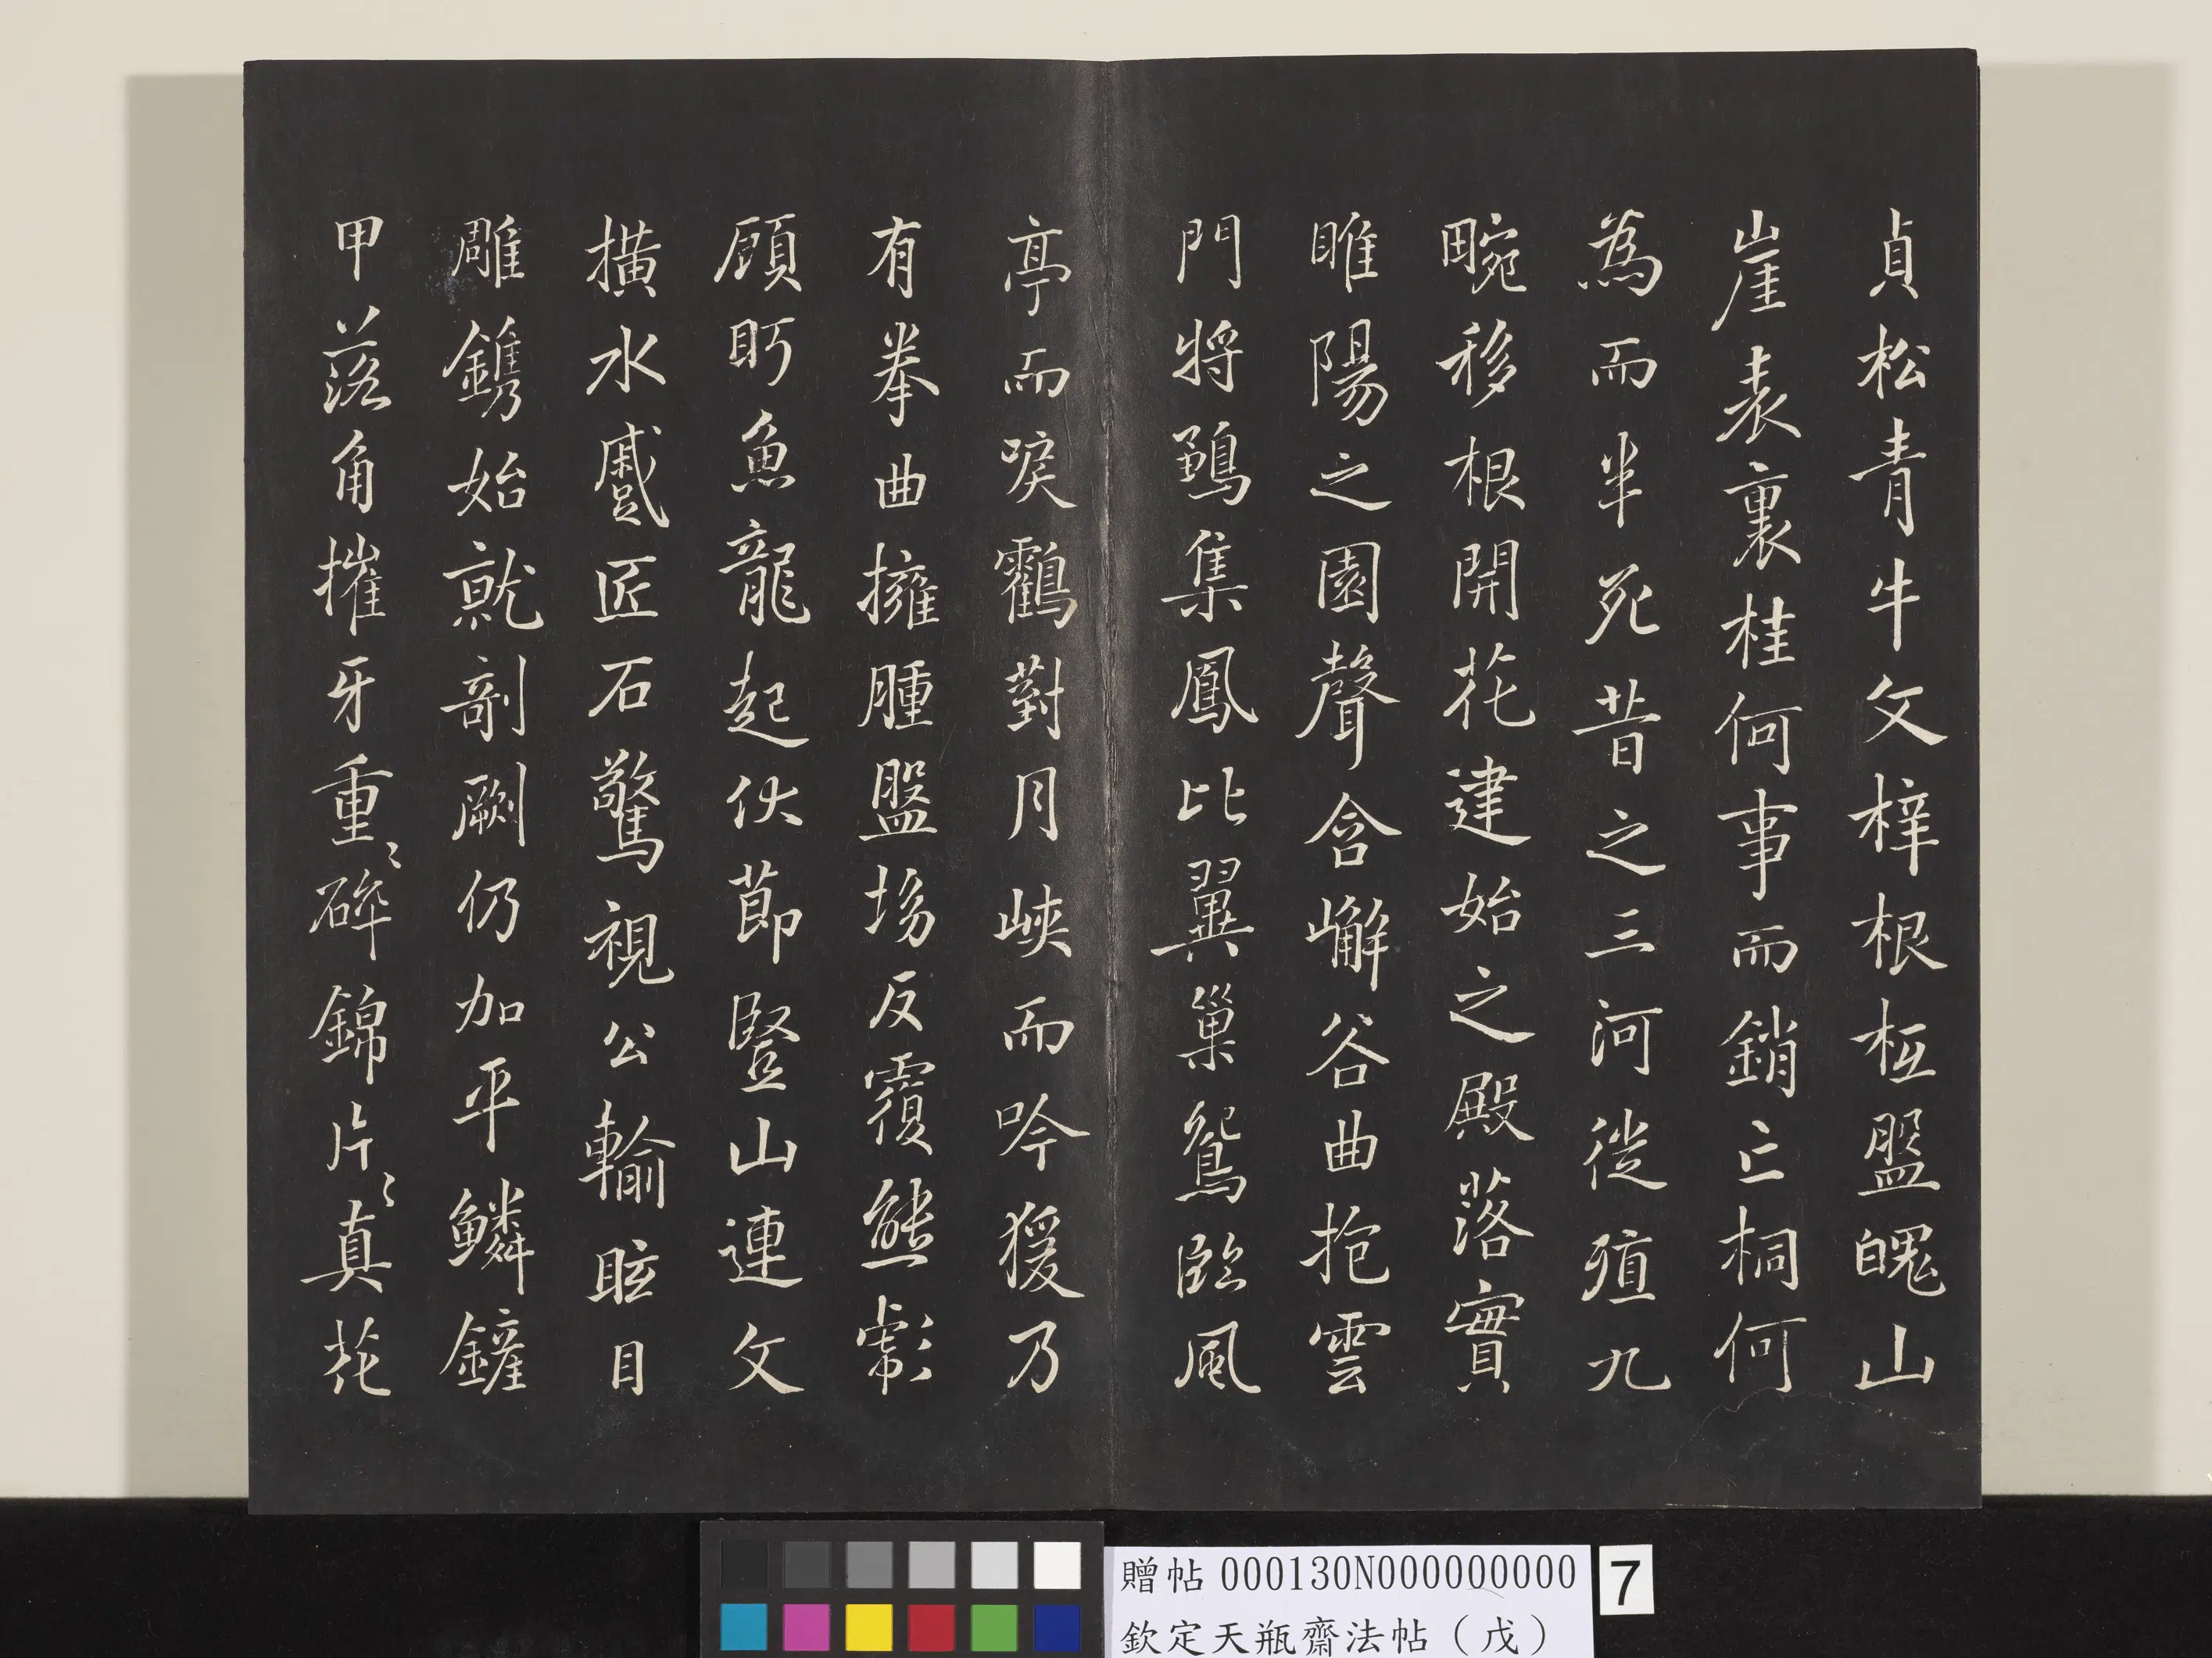 貞松青牛文梓根柢盤魄山
崖表裏桂何事而銷亡桐何
為而半死昔之三河徙殖九
畹移根開花建始之殿落實
睢陽之園聲含嶰谷曲抱雲
門將鶵集鳳比翼巢鴛臨風
亭而唳鶴對月峽而吟猨乃
有拳曲擁腫盤坳反覆熊彪
顧盼魚龍起伏節豎山連文
橫水蹙匠石驚視公輸眩目
雕鐫始就剞劂仍加平鱗鏟
甲落角摧牙重〻碎錦片〻真花
贈帖 000130N000000000
欽定天瓶齋法帖（戊）
7